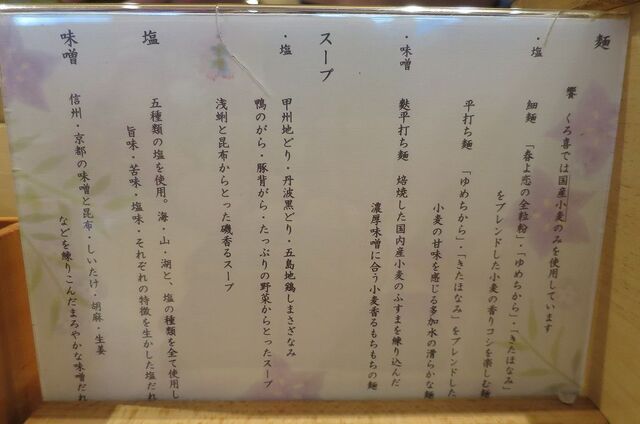 麺
饗 くろ喜では国産小麦のみを使用しています
・塩
細麺 「春よ恋の全粒粉」・「ゆめちから」・「きたほなみ」
をブレンドした小麦の香りコシを楽しむ麺
平打ち麺 「ゆめちから」・「きたほなみ」をブレンドした
小麦の甘味を感じる多加水の滑らかな麺
・味噌
麩平打ち麺 焙焼した国内産小麦のふすまを練り込んだ
濃厚味噌に合う小麦香るもちもちの麺
スープ
・塩
甲州地どり・丹波黒どり・五島地鶏しまさざなみ
鴨のがら・豚背がら・たっぷりの野菜からとったスープ
浅蜊と昆布からとった磯香るスープ
塩
五種類の塩を使用。海・山・湖と、塩の種類を全て使用し
旨味・苦味・塩味・それぞれの特徴を生かした塩だれ
味噌
信州・京都の味噌と昆布・しいたけ・胡麻・生姜
などを練りこんだまろやかな味噌だれ